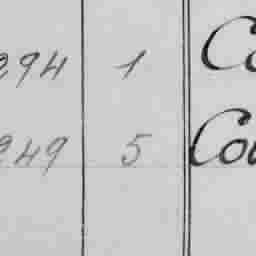 294 1 Co
249 5 Cou